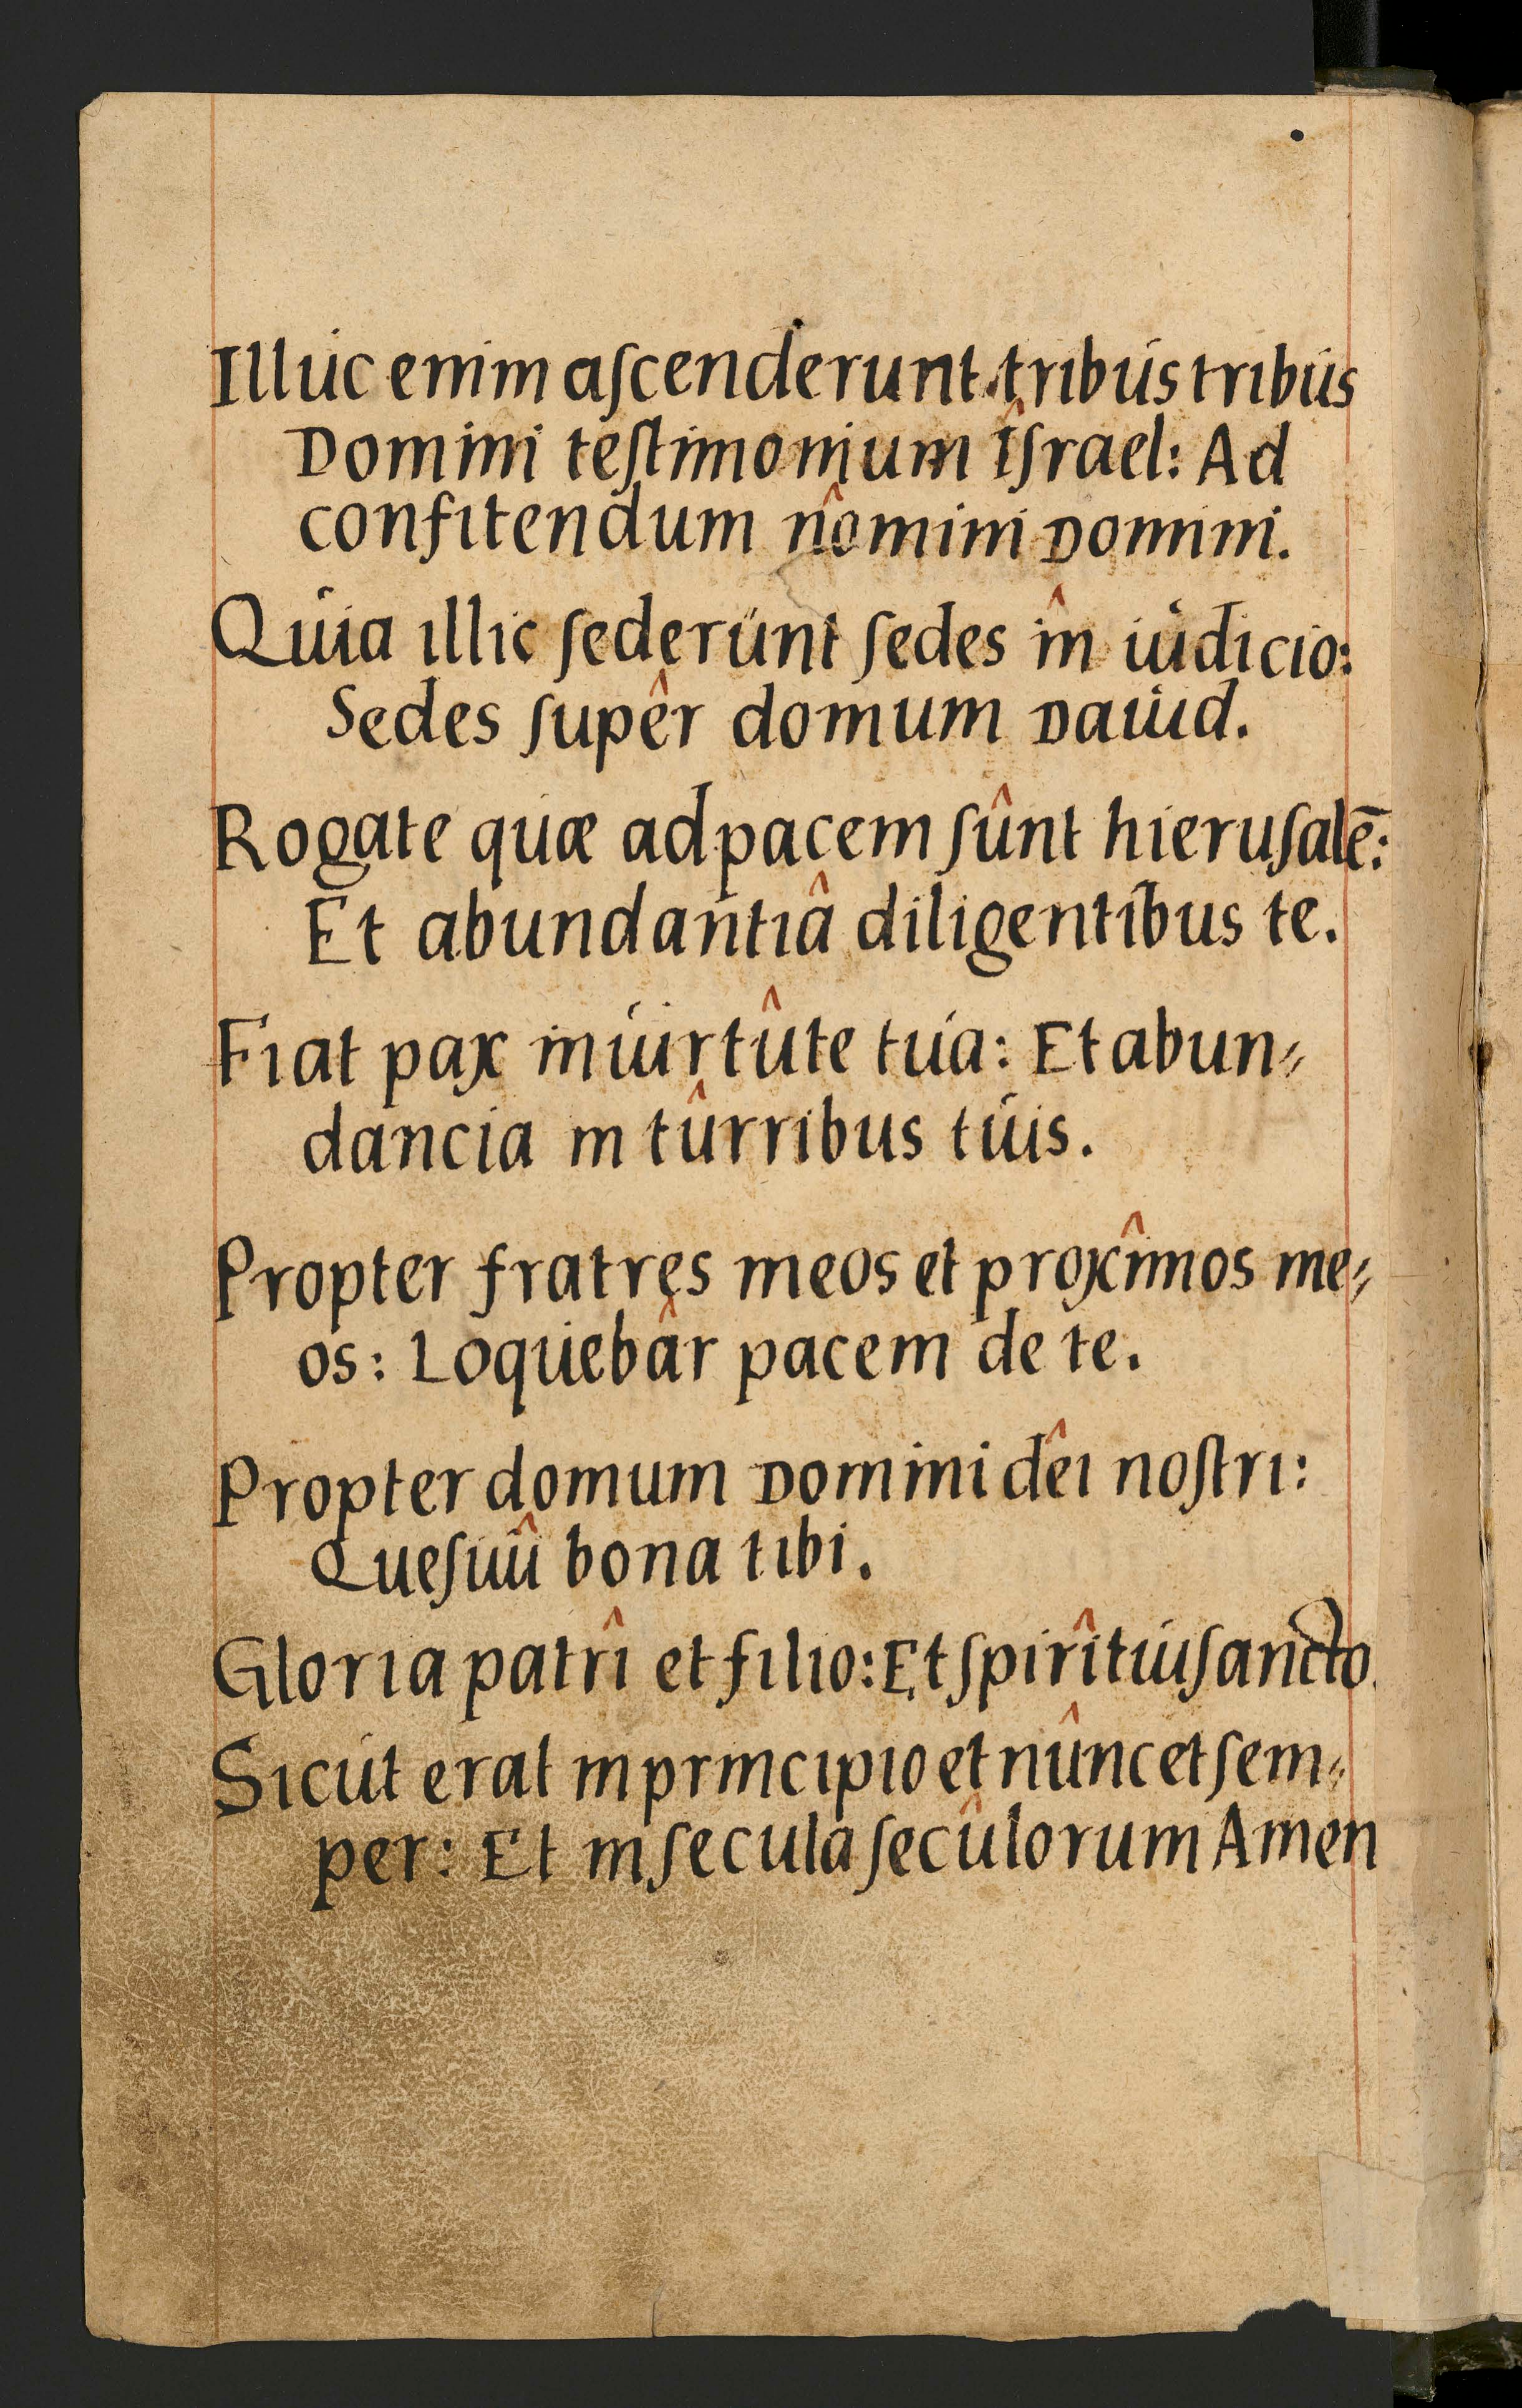 Illuc enim aſcenderunt tribus tribus
Domini teſtimonium Iſrael: Ad
confitendum nomini Domini.
Quia illic ſederunt ſedes in iudicio:
Sedes ſuper domum Dauid.
Rogate quæ ad pacem ſunt hieruſalē:
Et abundantia diligentibus te.
Fiat pax in uirtute tua: Et abun⸗
dancia in turribus tuis.
Propter fratres meos et proximos me⸗
os: Loquebar pacem de te.
Propter domum Domini dei noſtri:
Queſiui bona tibi.
Gloria patri et filio: Et ſpiritui ſancto.
Sicut erat in principio et nunc et ſem⸗
per: Et in ſecula ſeculorum Amen